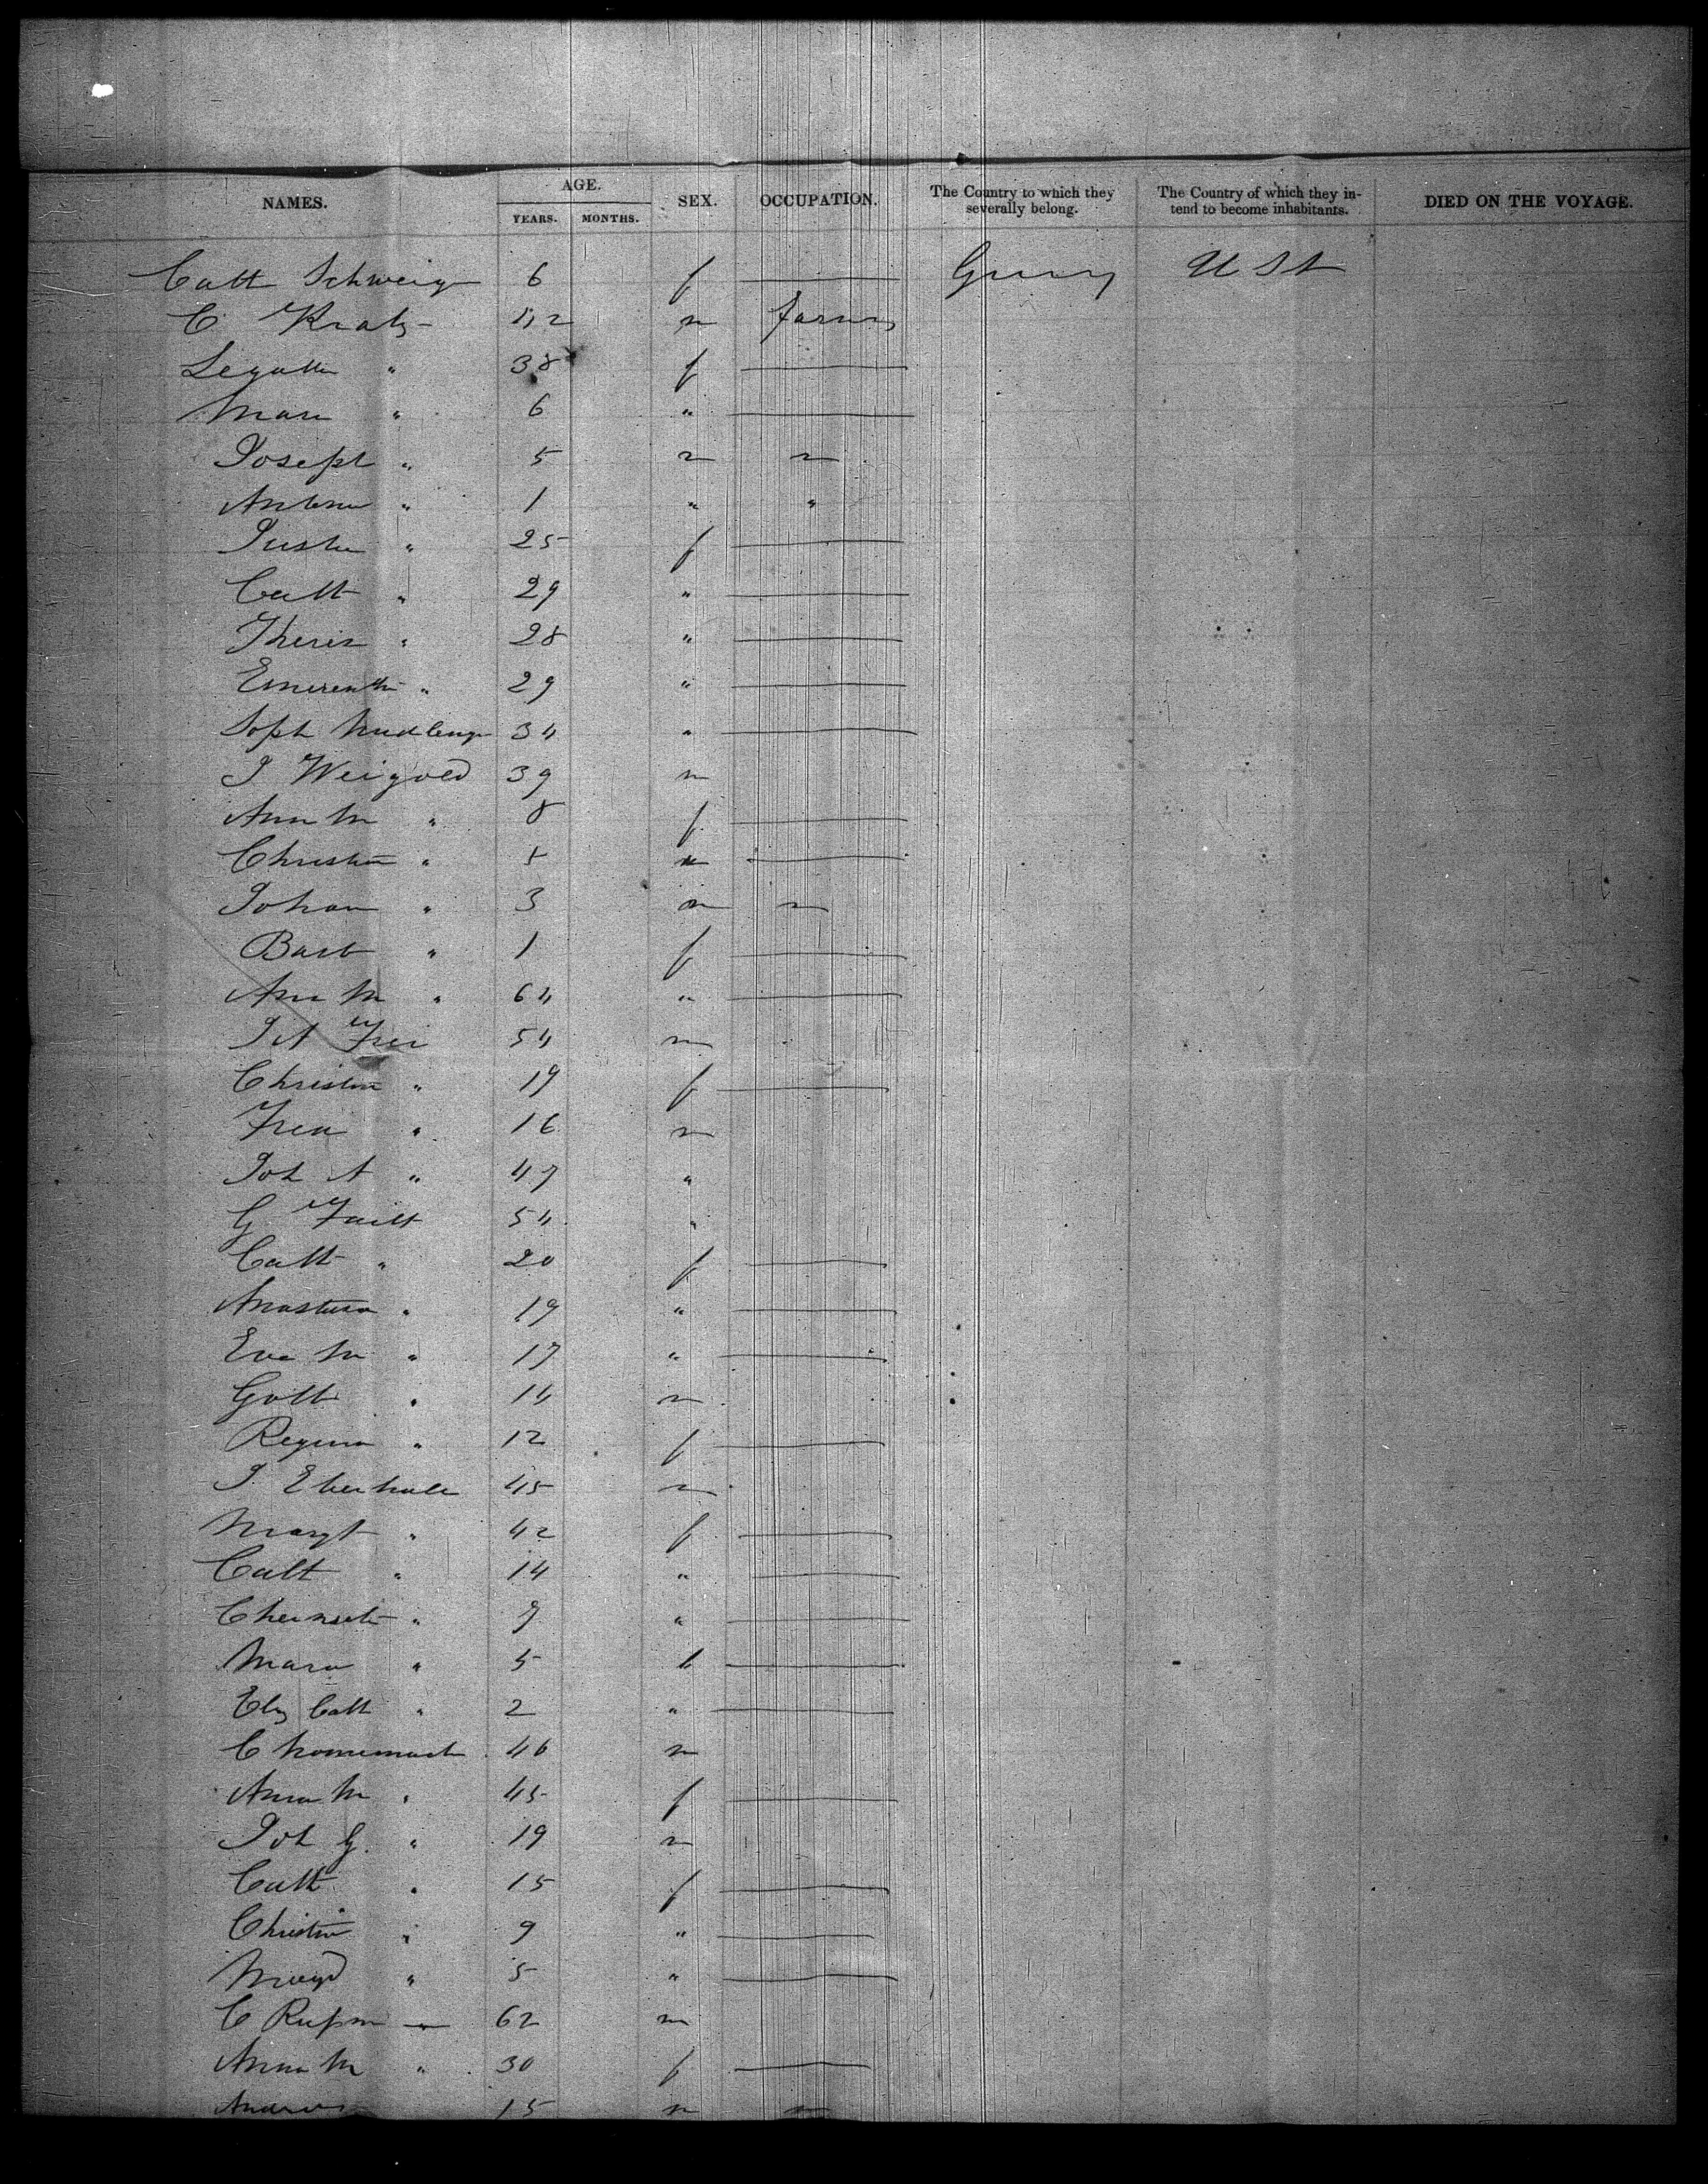 NAMES. AGE. YEARS. MONTHS. SEX. OCCUPATION. The Country to which they severally belong. The Country of which they intend to become inhabitants. DIED ON THE VOYAGE.
Cath 6 f Germy U St
C Kratz 42 m farmer
38 f
Mari " 6 "
Joseph " 5 m
Anton " 1 " "
" 25 f
Cath " 29 "
Theres " 28 "
Emerenth " 29 "
Soph 34 "
J Weigold 39 m
Ann M " 8 f
Christin " 5
Johan " 3 m
Barb " 1 f
Ann M " 64 "
J A Frei 54 m
Christin " 19 f
" 16 m
Joh A " 47 "
G 54 "
Cath " 20 f
Anastasia " 19 "
Eva M " 17 "
Gott " 14 m
Regina " 12 f
J 45 m
Margt " 42 f
Cath " 14 "
" "
Maria " 5 f
Elis Cath " 2 "
C 46 m
Anna M " 45 f
Joh G. " 19 m
Cath " 15 f
Christin " 9 "
" 5 "
C 62 m
Anna M " 30 f
Andreas 15 m